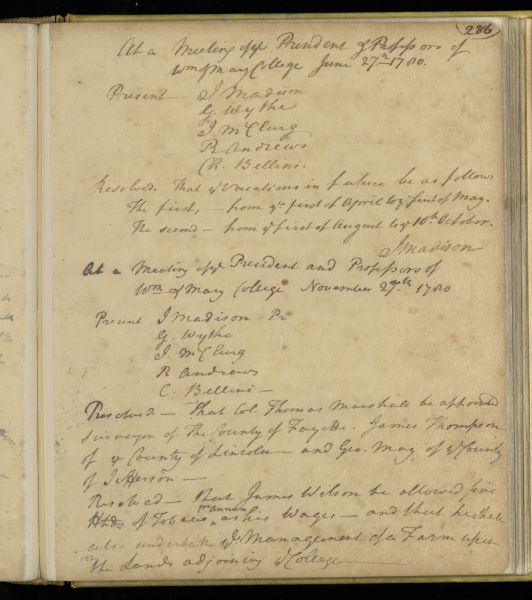 286
At a Meeting of ye President & Professors of
Wm & Mary College June 27th 1780.
Present — J Madison
G. Wythe
J McClurg
R Andrews
C. Bellini.
Resolved. That ye Vacations in future be as follows
The first, — from ye first of April to ye first of May.
The second — from ye first of August to ye 10th October.
J Madison
At a Meeting of ye President and Professors of
Wm & Mary College November 29th 1780
Present J Madison Pr
G. Wythe
J. McClurg
R Andrews
C. Bellini —
Resolved — That Col. Thomas Marshall be appointed
Surveyor of The County of Fayette. James Thompson
of ye County of Lincoln — and Geo. May of ye County
of Jefferson —
Resolved — that James Wilson be allowed five
Hhds of Tobacco pr Annum as his Wages — and that he shall
also undertake ye Management of a Farm upon
the Lands adjoining ye College —